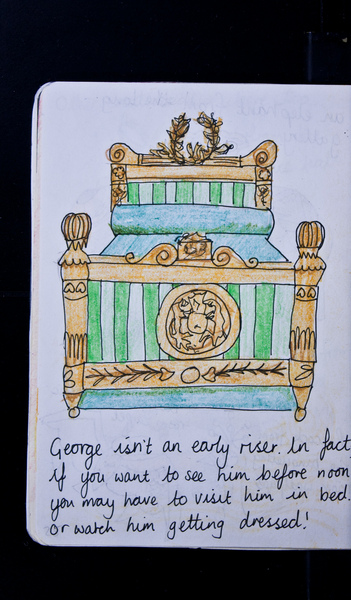 George isn't an early riser. In fact,
if you want to see him before noon,
you may have to visit him in bed.
Or watch him getting dressed!